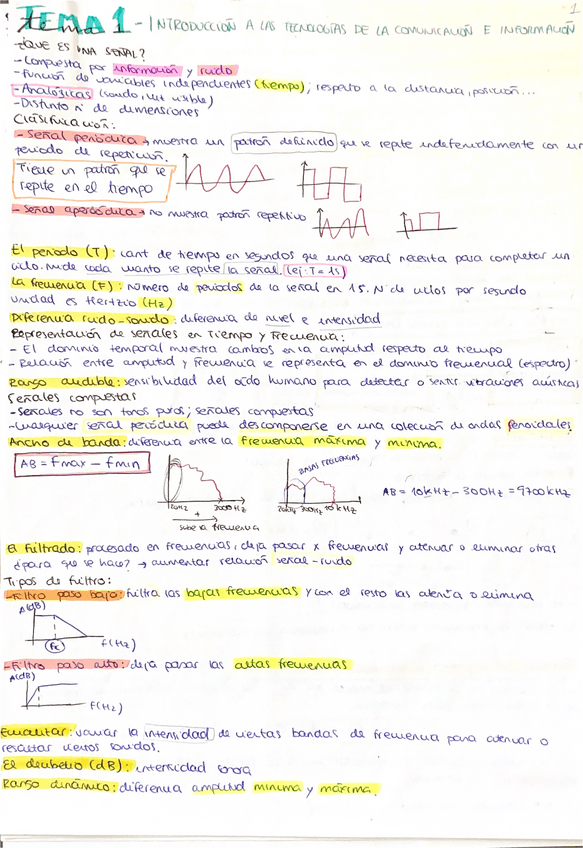 TEMA 1 - INTRODUCCIÓN A LAS TECNOLOGÍAS DE LA COMUNICACIÓN E INFORMACIÓN
1
¿QUE ES UNA SEÑAL?
- Compuesta por información y ruido
- Función de variables independientes (tiempo); respecto a la distancia, posición...
- Analógicas (sonido, luz visible)
- Distinto nº de dimensiones
Clasificación:
- Señal periódica → muestra un patrón definido que se repite indefinidamente con un
periodo de repetición.
Tiene un patrón que se
repite en el tiempo
- Señal aperiódica → no muestra patrón repetitivo
El periodo (T): cant de tiempo en segundos que una señal necesita para completar un
ciclo. Mide cada cuanto se repite la señal. (ej: T = 1s)
La frecuencia (F): número de periodos de la señal en 1s. N de ciclos por segundo
unidad es Hertzio (Hz)
Diferencia ruido-sonido: diferencia de nivel e intensidad
Representación de señales en Tiempo y Frecuencia:
- El dominio temporal muestra cambios en la amplitud respecto al tiempo
- Relación entre amplitud y frecuencia se representa en el dominio frecuencial (espectro)
Rango audible: sensibilidad del oído humano para detectar o sentir vibraciones acústicas
Señales compuestas
- Señales no son tonos puros; señales compuestas
- Cualquier señal periódica puede descomponerse en una colección de ondas senoidales.
Ancho de banda: diferencia entre la frecuencia máxima y mínima.
AB = fmax - fmin
20Hz 3000Hz
+
sube la frecuencia
BAJAS FRECUENCIAS
300Hz 10kHz
AB = 10kHz - 300Hz = 9700kHz
El filtrado: procesado en frecuencias, deja pasar x frecuencias y atenuar o eliminar otras
¿para que se hace? → aumentar relación señal-ruido
Tipos de filtro:
- Filtro paso bajo: filtra las bajas frecuencias y con el resto las atenta o elimina
A(dB)
fc f(Hz)
- Filtro paso alto: deja pasar las altas frecuencias
A(dB)
f(Hz)
Ecualizar: variar la intensidad de ciertas bandas de frecuencia para atenuar o
resaltar ciertos sonidos.
El decibelio (dB): intensidad sonora
Rango dinámico: diferencia amplitud mínima y máxima.